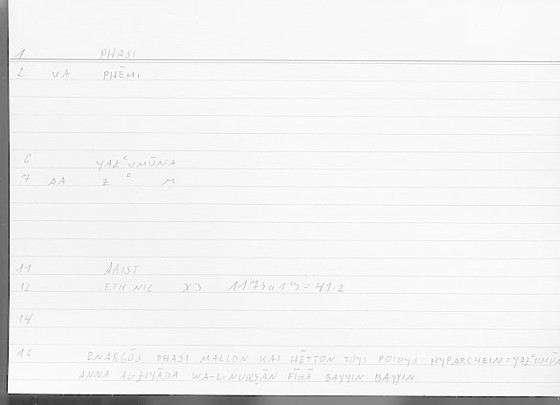 1 PHASI
2 VA PHĒMI
6 YAZʿUMŪNA
7 AA Z ʿ M
11 ARIST
12 ETH NIC X3 1173a19=41.2
14
16 ENARGŌS PHASI MALLON KAI HĒTTON TOYS POIOYS HYPARCHEIN=YAZʿUMŪN
ANNA AL-ZIYĀDA WA-L-NUQṢĀN FĪHĀ BAYYIN BAYYIN